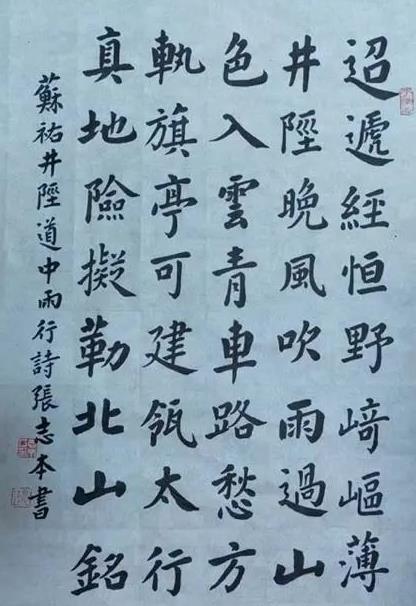 迢遞經恒野﨑嶇薄
井陘晚風吹雨過山
色入雲青車路愁方
軌旗亭可建瓴太行
真地險擬勒北山銘
蘇祐井陘道中雨行詩張志本書